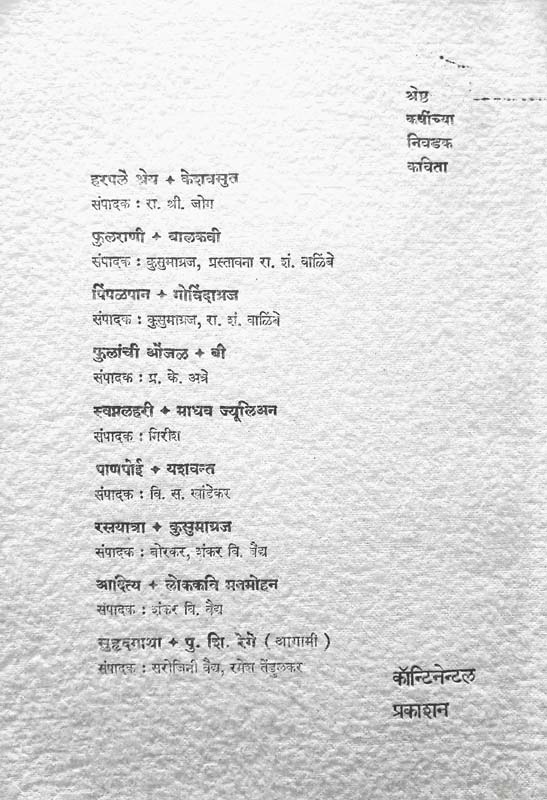 श्रेष्ठ
कवींच्या
निवडक
कविता
हरपले श्रेय + केशवसुत
संपादक : रा. श्री. जोग
फुलराणी + बालकवी
संपादक : कुसुमाग्रज, प्रस्तावना रा. शं. वाळिंबे
पिंपळपान + गोविंदाग्रज
संपादक : कुसुमाग्रज, रा. शं. वाळिंबे
फुलांची ओंजळ + बी
संपादक : प्र. के. अत्रे
स्वप्नलहरी + माधव ज्यूलिअन
संपादक : गिरीश
पाणपोई + यशवन्त
संपादक : वि. स. खांडेकर
रसयात्रा + कुसुमाग्रज
संपादक : बोरकर, शंकर वि. वैद्य
आदित्य + लोककवि मनमोहन
संपादक : शंकर वि. वैद्य
सुहृदगाथा + पु. शि. रेगे ( आगामी )
संपादक : सरोजिनी वैद्य, रमेश तेंडुलकर
कॉन्टिनेन्टल
प्रकाशन